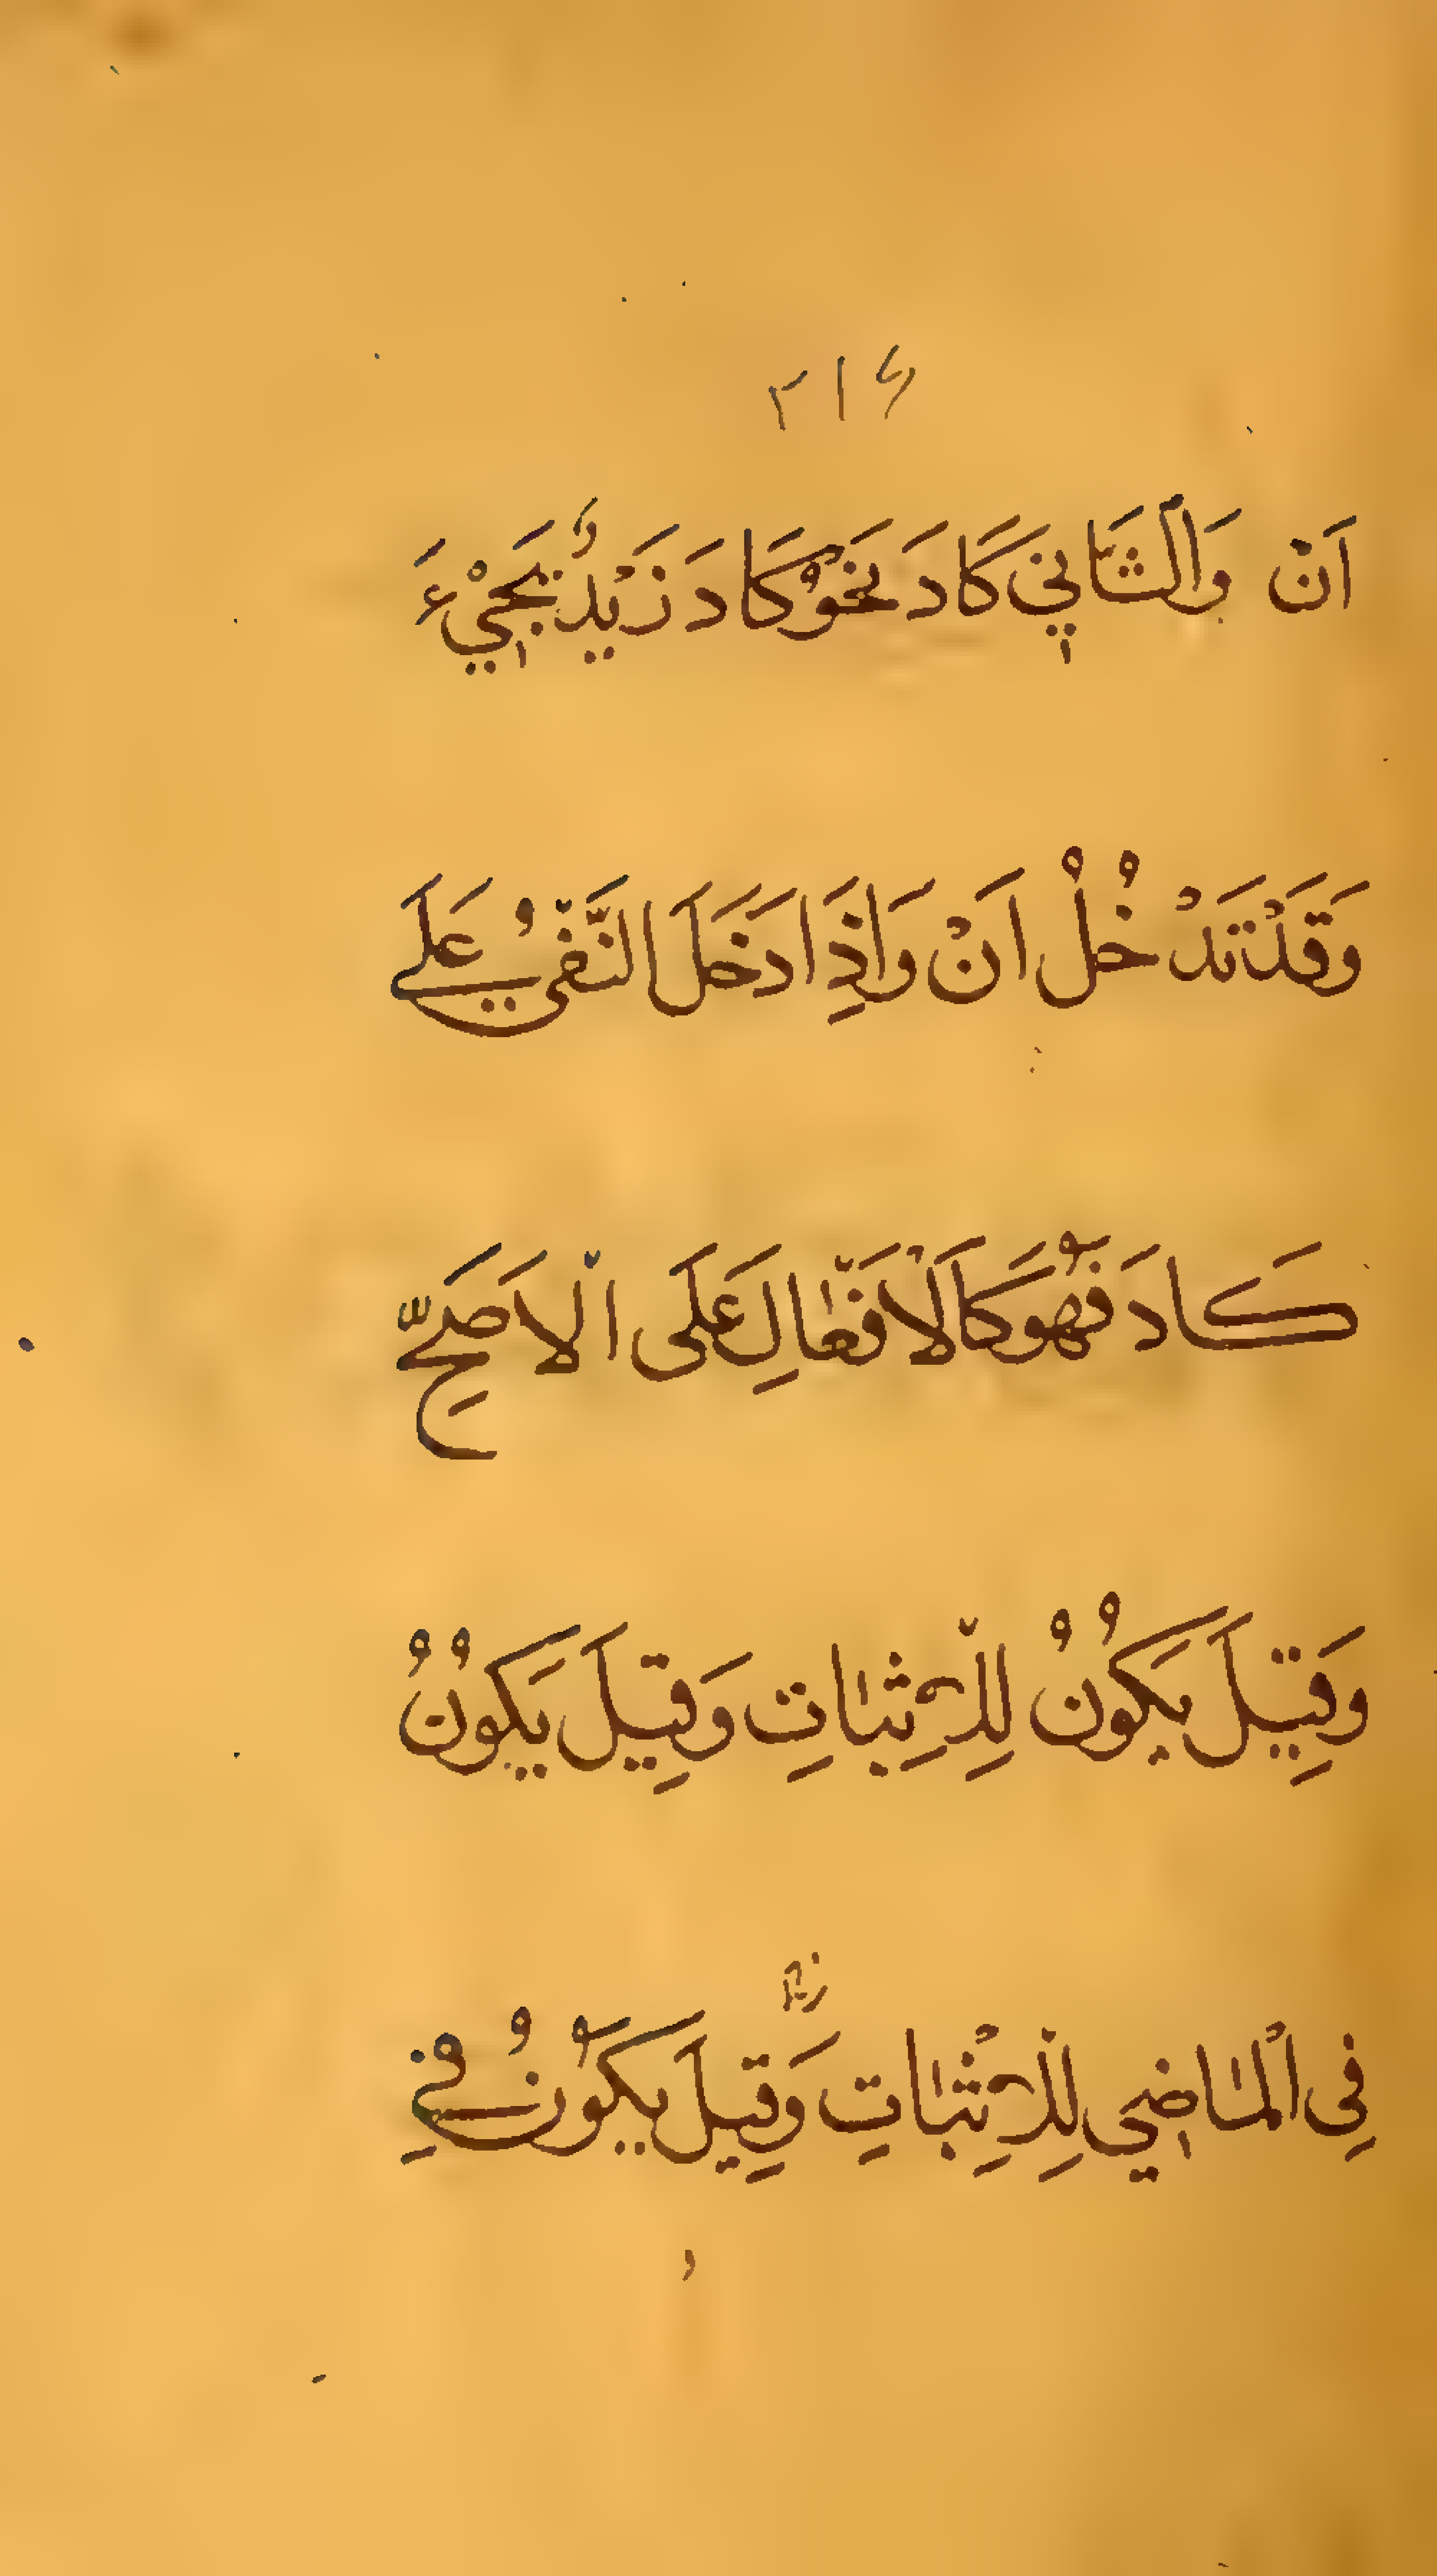 اَنْ وَالثَّانِي كَادَ نَحْوُ كَادَ زَيْدٌ يَجِيْءَ
وَقَدْ تَدْخُلُ اَنْ وَاِذَا دَخَلَ النَّفْيُ عَلَى
كَادَ فَهُوَ كَالْاَفْعَالِ عَلَى الْاَصَحِّ
وَقِيلَ يَكُونُ لِلْاِثْبَاتِ وَقِيلَ يَكُونُ
فِى الْمَاضِي لِلْاِثْبَاتِ وَقِيلَ يَكُونُ فِي